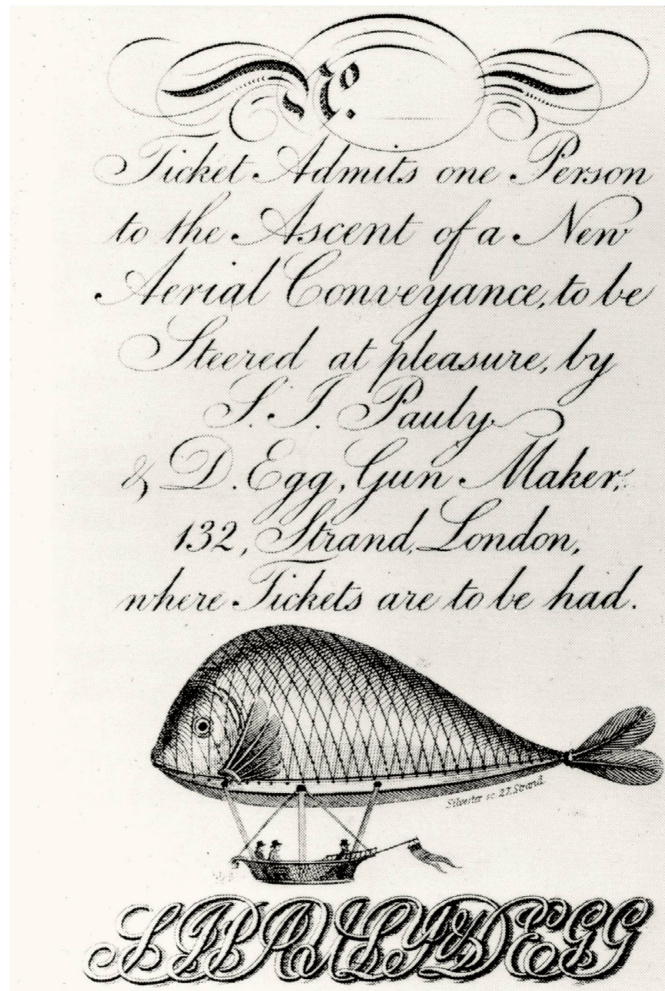 No.
Ticket Admits one Person
to the Ascent of a New
Aerial Conveyance, to be
Steered at pleasure, by
S. J. Pauly
& D. Egg, Gun Maker,
132, Strand, London,
where Tickets are to be had.
Silvester sc. 27, Strand
S J PAULY & D EGG